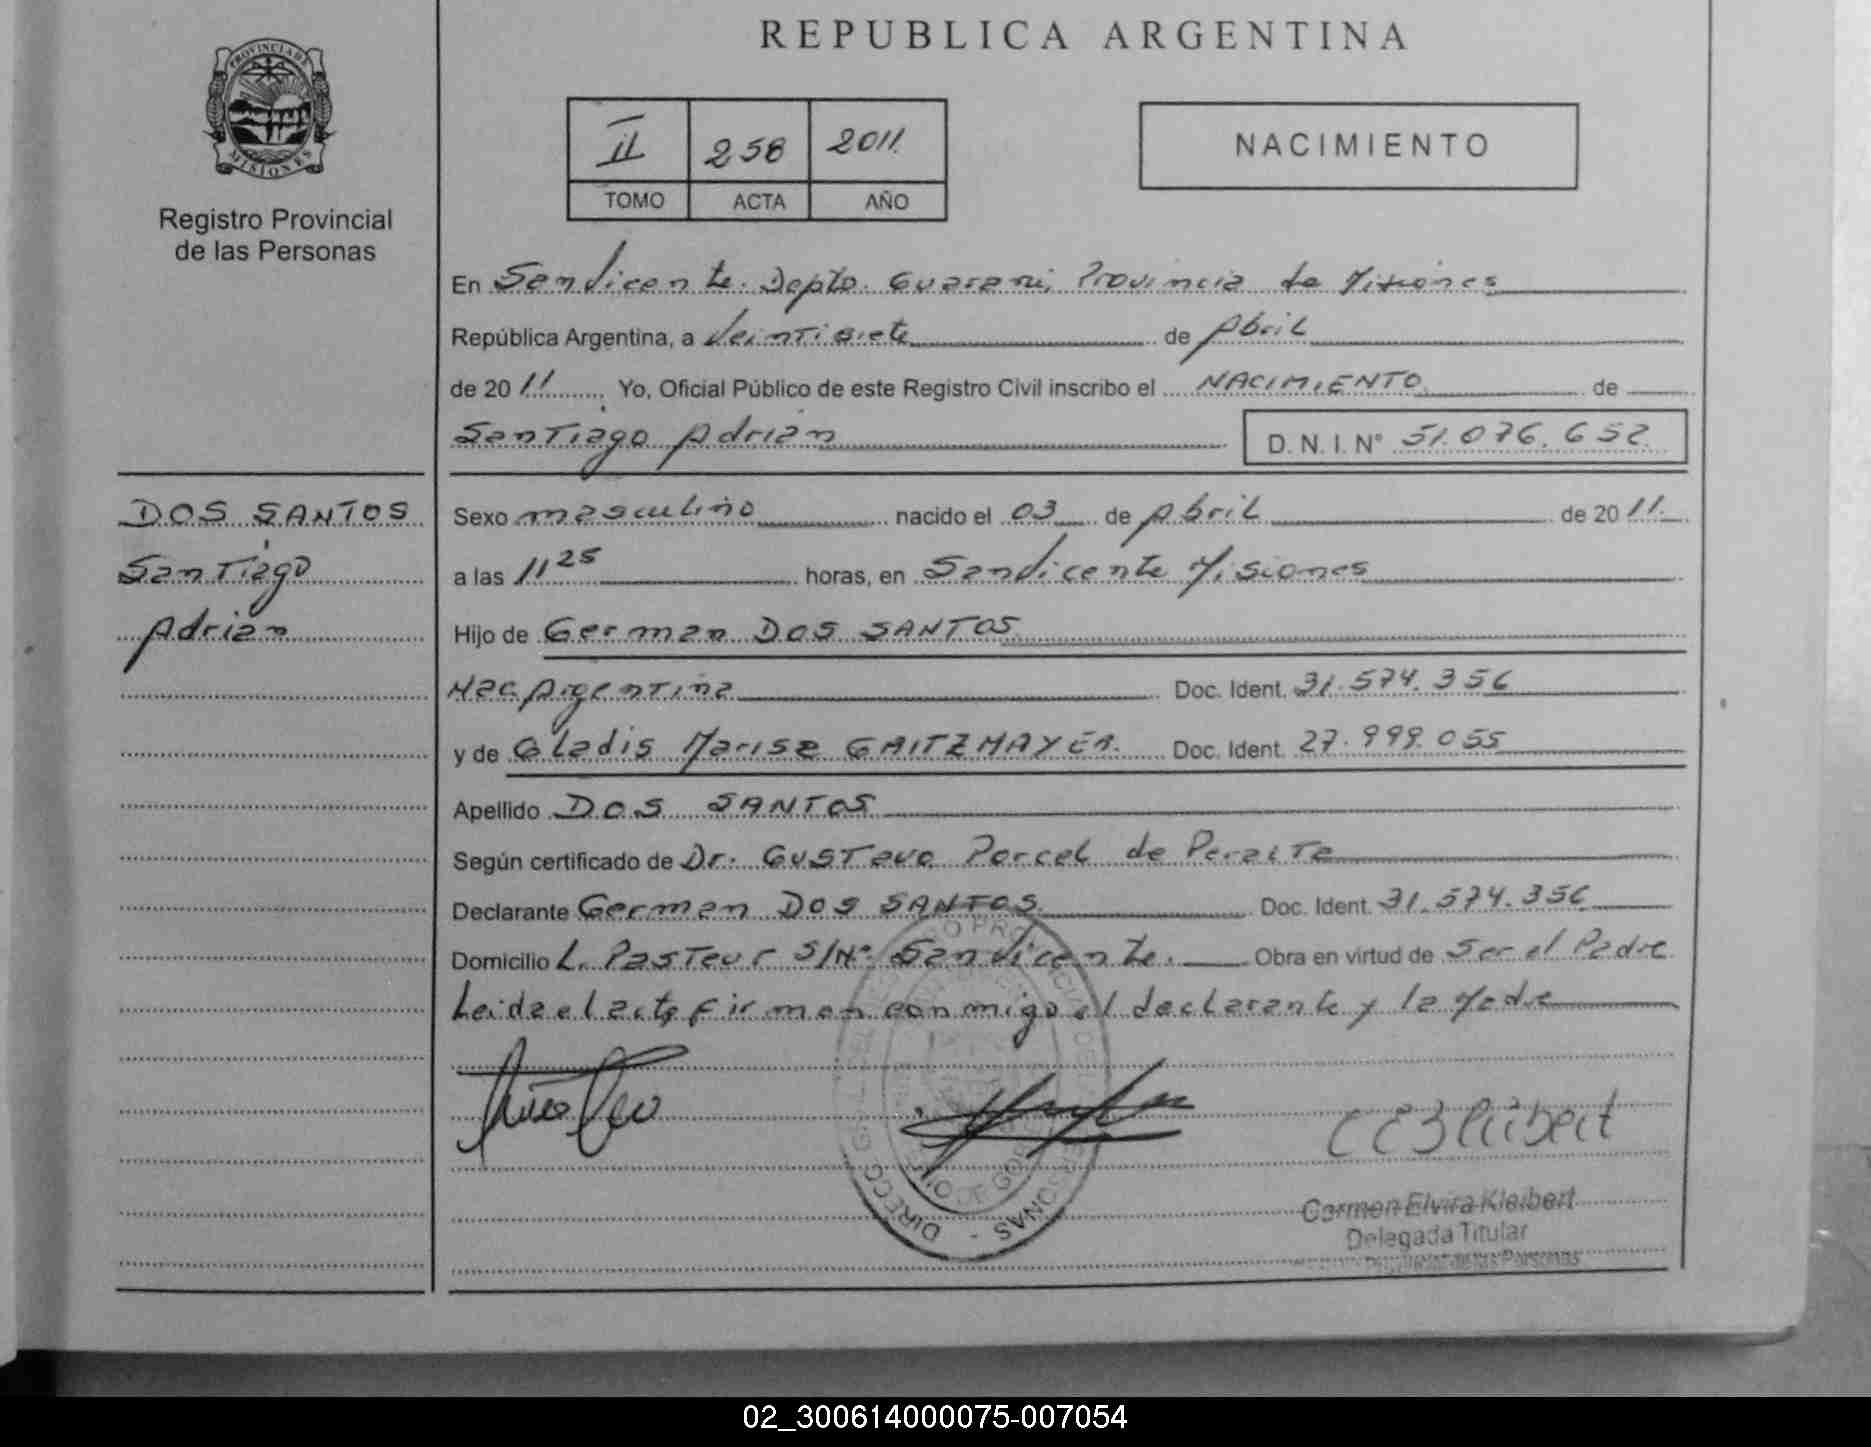 REPUBLICA ARGENTINA
PROVINCIA DE
MISIONES
Registro Provincial
de las Personas
II 258 2011
TOMO ACTA AÑO
NACIMIENTO
En San Vicente. Depto. Guaraní, Provincia de Misiones
República Argentina, a Veintisiete de Abril
de 2011 Yo, Oficial Público de este Registro Civil inscribo el NACIMIENTO de
Santiago Adrián D. N. I. N° 51.076.652
DOS SANTOS
Santiago
Adrián
Sexo masculino nacido el 03 de Abril de 2011
a las 11 25 horas, en San Vicente Misiones
Hijo de German DOS SANTOS
Nac. Argentina Doc. Ident. 31.574.356
y de Gladis Marise GAITZMAYER. Doc. Ident. 27.999.055
Apellido DOS SANTOS
Según certificado de Dr. Gustavo Porcel de Peralta
Declarante German DOS SANTOS Doc. Ident. 31.574.356
Domicilio L. Pasteur S/N° San Vicente. Obra en virtud de Ser el Padre
Leida el acta firman conmigo el declarante y la Madre
Carmen Elvira Kleibert
Delegada Titular
de las Personas
02_300614000075-007054